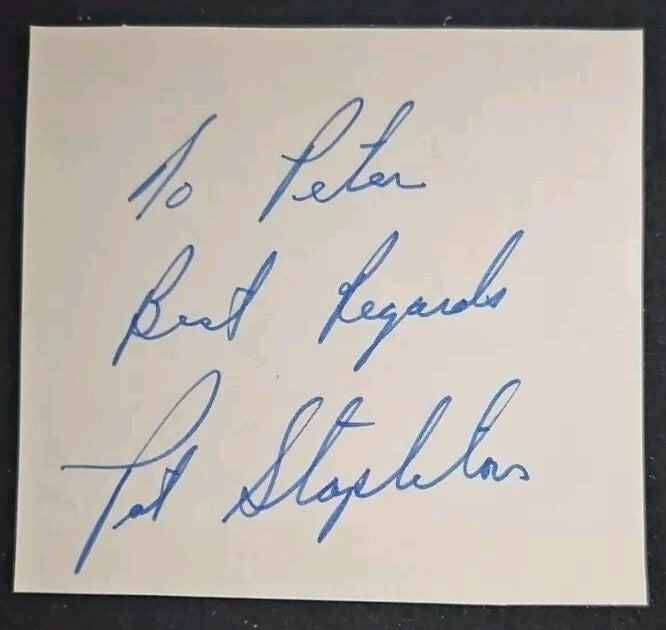 To Peter
Best Regards
Pat Stapleton